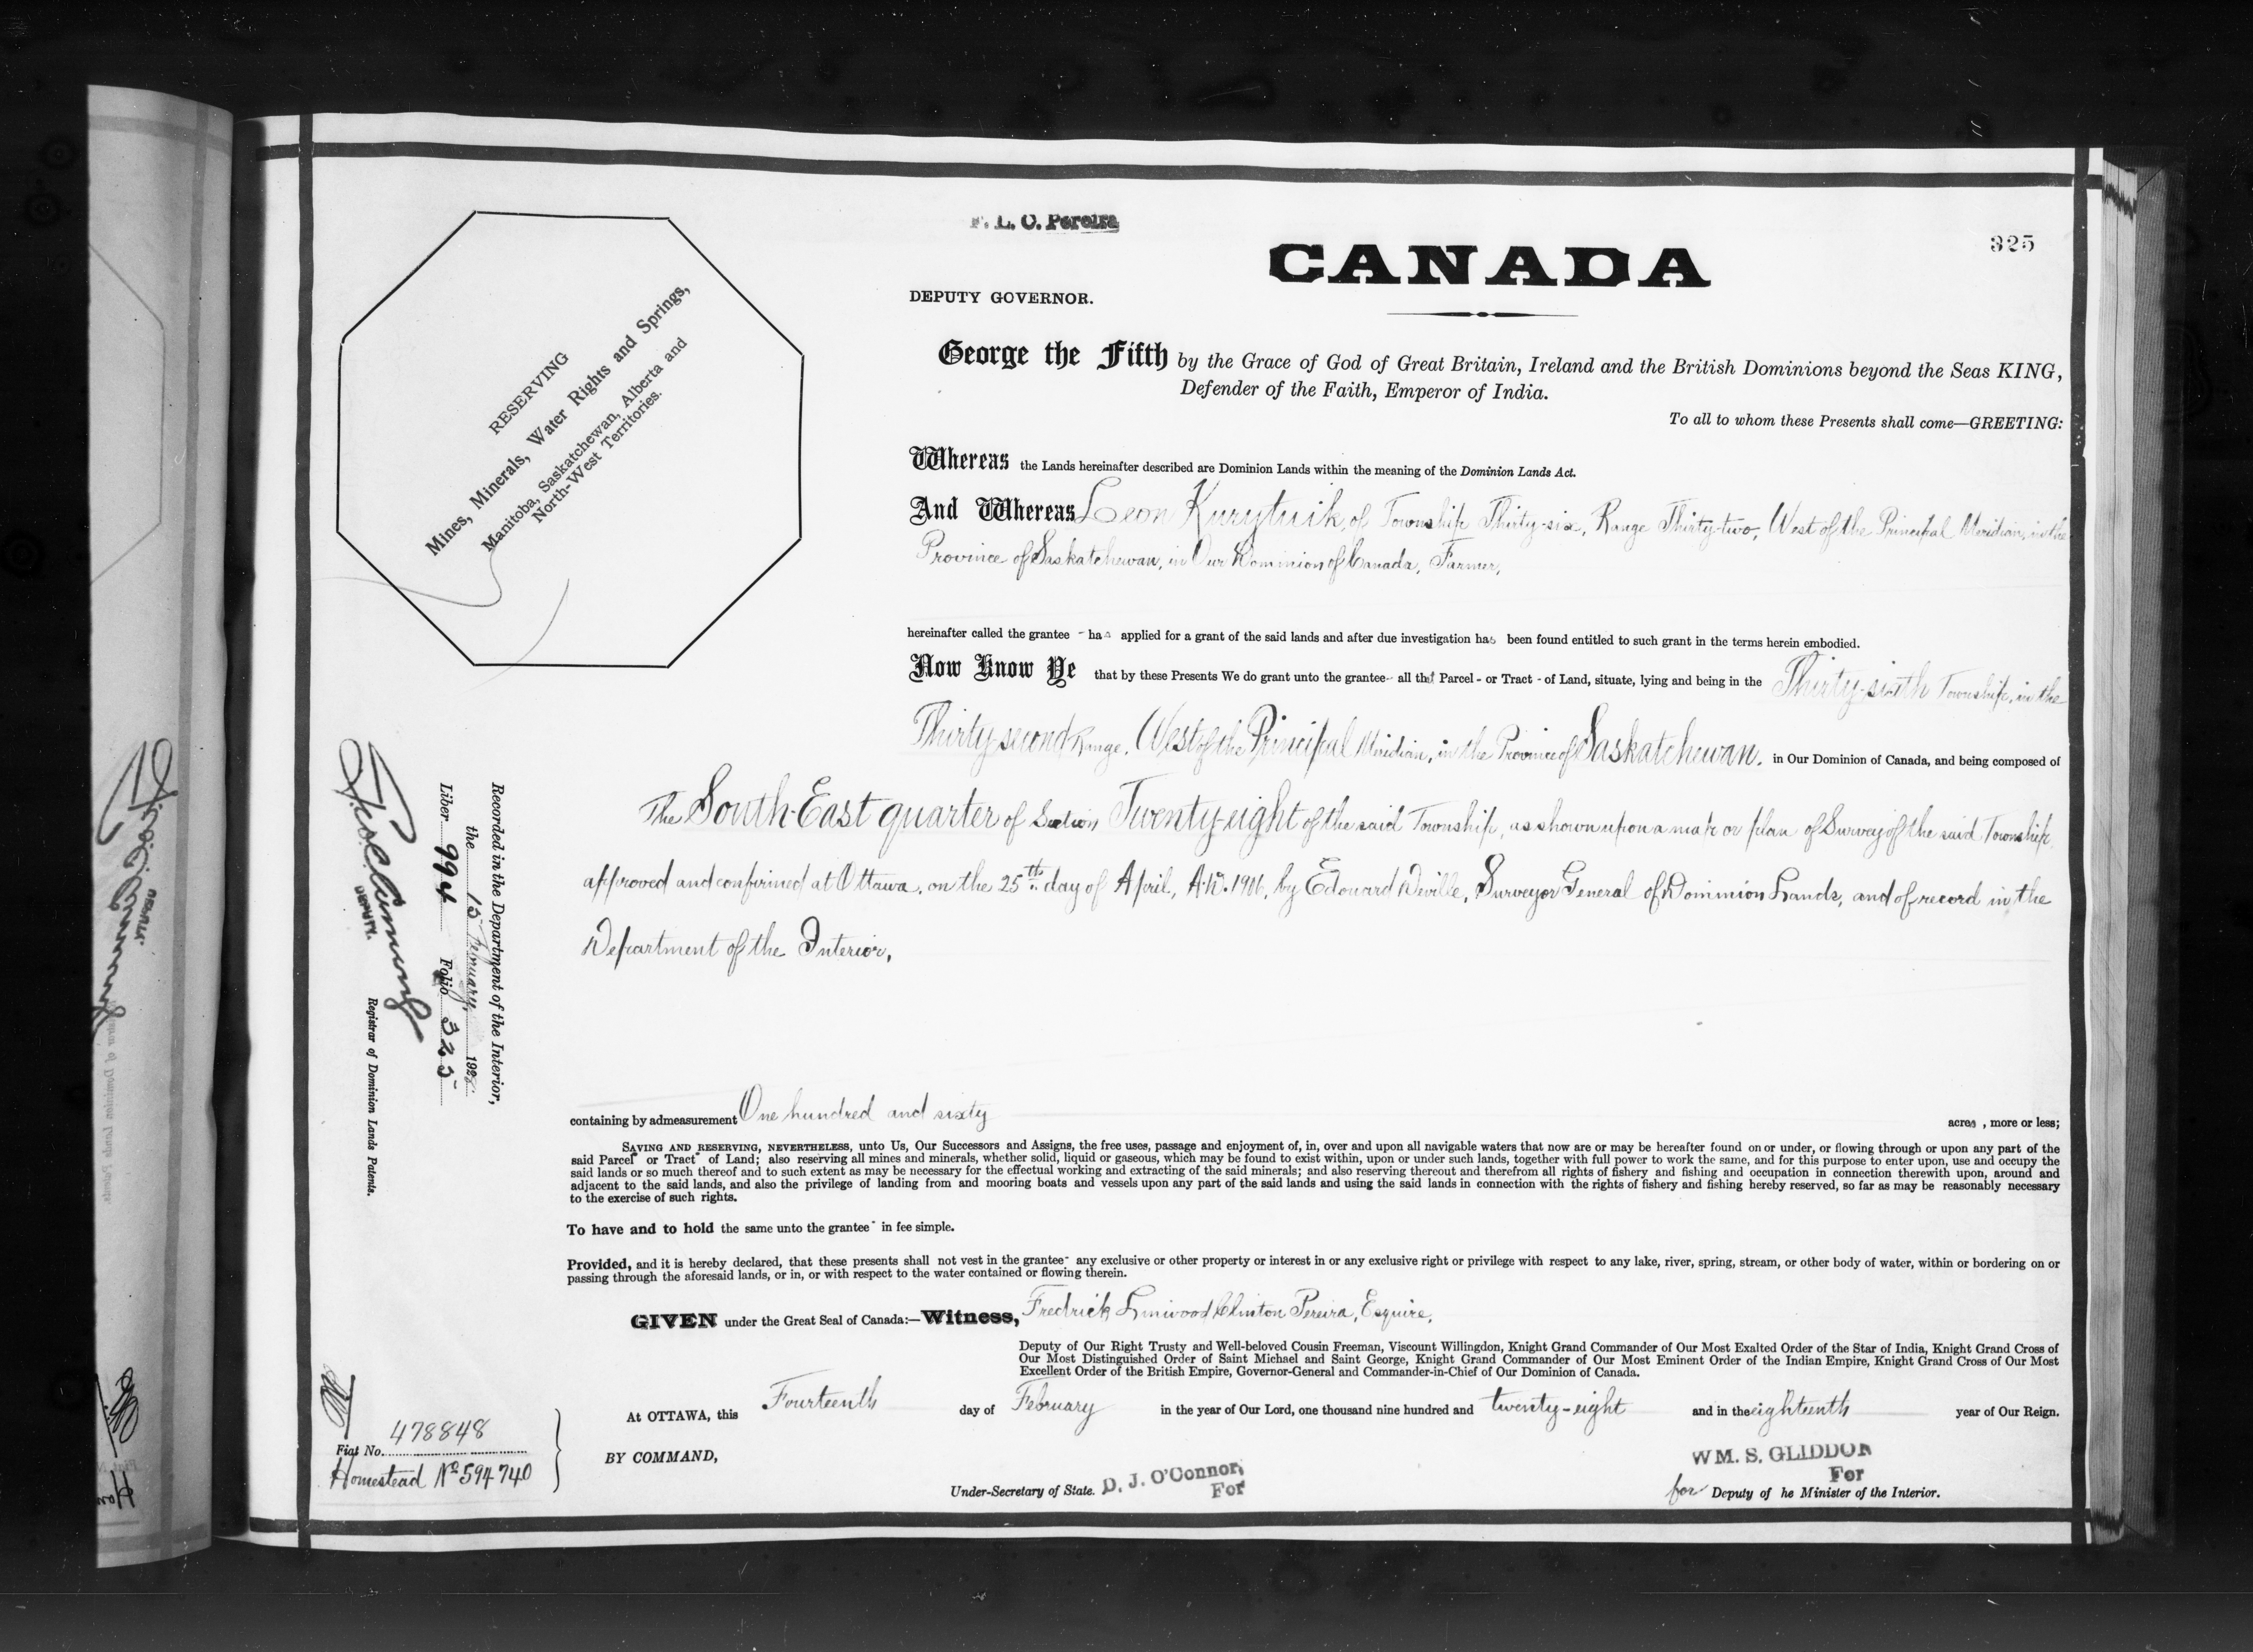 F. L. C. Pereira
CANADA
325
DEPUTY GOVERNOR.
RESERVING
Mines, Minerals, Water Rights and Springs,
Manitoba, Saskatchewan, Alberta and
North-West Territories.
George the Fifth by the Grace of God of Great Britain, Ireland and the British Dominions beyond the Seas KING,
Defender of the Faith, Emperor of India.
To all to whom these Presents shall come—GREETING:
Whereas the Lands hereinafter described are Dominion Lands within the meaning of the Dominion Lands Act.
And Whereas Leon Kurytnik, of Township Thirty-six, Range Thirty-two, West of the Principal Meridian, in the
Province of Saskatchewan, in Our Dominion of Canada, Farmer,
hereinafter called the grantee - has applied for a grant of the said lands and after due investigation has been found entitled to such grant in the terms herein embodied.
Now Know Ye that by these Presents We do grant unto the grantee - all that Parcel - or Tract - of Land, situate, lying and being in the Thirty-sixth Township, in the
Thirty-second Range, West of the Principal Meridian, in the Province of Saskatchewan, in Our Dominion of Canada, and being composed of
The South-East quarter of Section Twenty-eight of the said Township, as shown upon a map or plan of Survey of the said Township,
approved and confirmed at Ottawa, on the 25th day of April, A.D. 1906, by Edouard Deville, Surveyor General of Dominion Lands, and of record in the
Department of the Interior,
containing by admeasurement One hundred and sixty acres, more or less;
SAVING AND RESERVING, NEVERTHELESS, unto Us, Our Successors and Assigns, the free uses, passage and enjoyment of, in, over and upon all navigable waters that now are or may be hereafter found on or under, or flowing through or upon any part of the
said Parcel - or Tract - of Land; also reserving all mines and minerals, whether solid, liquid or gaseous, which may be found to exist within, upon or under such lands, together with full power to work the same, and for this purpose to enter upon, use and occupy the
said lands or so much thereof and to such extent as may be necessary for the effectual working and extracting of the said minerals; and also reserving thereout and therefrom all rights of fishery and fishing and occupation in connection therewith upon, around and
adjacent to the said lands, and also the privilege of landing from and mooring boats and vessels upon any part of the said lands and using the said lands in connection with the rights of fishery and fishing hereby reserved, so far as may be reasonably necessary
to the exercise of such rights.
To have and to hold the same unto the grantee - in fee simple.
Provided, and it is hereby declared, that these presents shall not vest in the grantee - any exclusive or other property or interest in or any exclusive right or privilege with respect to any lake, river, spring, stream, or other body of water, within or bordering on or
passing through the aforesaid lands, or in, or with respect to the water contained or flowing therein.
GIVEN under the Great Seal of Canada:—Witness, Fredrick Linwood Clinton Pereira, Esquire,
Deputy of Our Right Trusty and Well-beloved Cousin Freeman, Viscount Willingdon, Knight Grand Commander of Our Most Exalted Order of the Star of India, Knight Grand Cross of
Our Most Distinguished Order of Saint Michael and Saint George, Knight Grand Commander of Our Most Eminent Order of the Indian Empire, Knight Grand Cross of Our Most
Excellent Order of the British Empire, Governor-General and Commander-in-Chief of Our Dominion of Canada.
At OTTAWA, this Fourteenth day of February in the year of Our Lord, one thousand nine hundred and twenty-eight and in the eighteenth year of Our Reign.
BY COMMAND,
Under-Secretary of State. D. J. O'Connor,
For
WM. S. GLIDDON
For
for Deputy of he Minister of the Interior.
Recorded in the Department of the Interior,
the 15 February, 1928
Liber 994 Folio 325
DEPUTY.
Registrar of Dominion Lands Patents.
Fiat No. 478848
Homestead No 594740